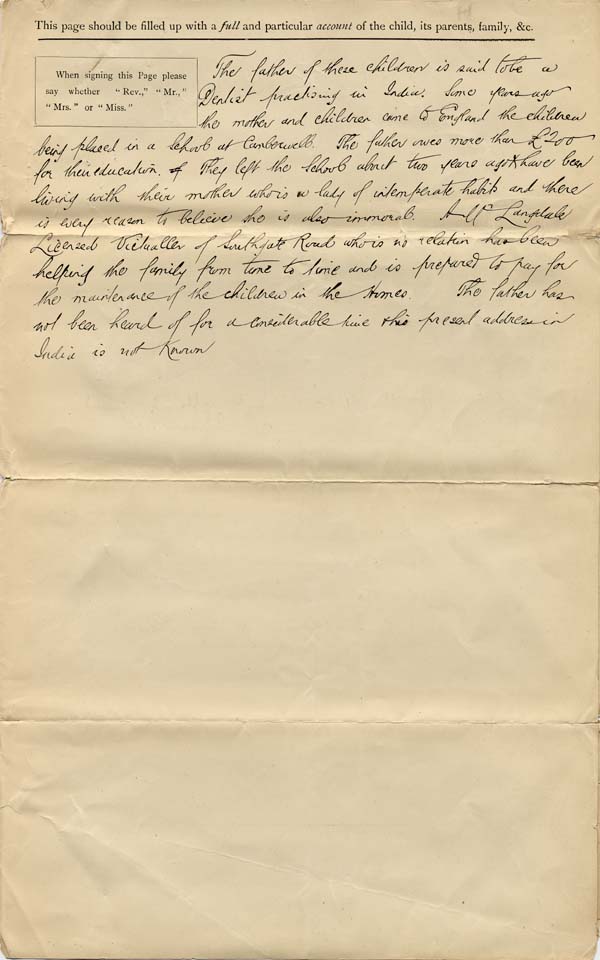 This page should be filled up with a full and particular account of the child, its parents, family, &c.
When signing this Page please
say whether "Rev.," "Mr.,"
"Mrs." or "Miss."
The father of these children is said to be a
Dentist practising in India. Some years ago
the mother and children came to England the children
being placed in a School at Camberwell. The father owes more than £200
for their education. They left the School about two years ago & have been
living with their mother who is a lady of intemperate habits and there
is every reason to believe she is also immoral. A Mr Langdale
Licensed Victualler of Southgate Road who is no relation has been
helping the family from time to time and is prepared to pay for
the maintenance of the children in the Homes. The father has
not been heard of for a considerable time & his present address in
India is not Known